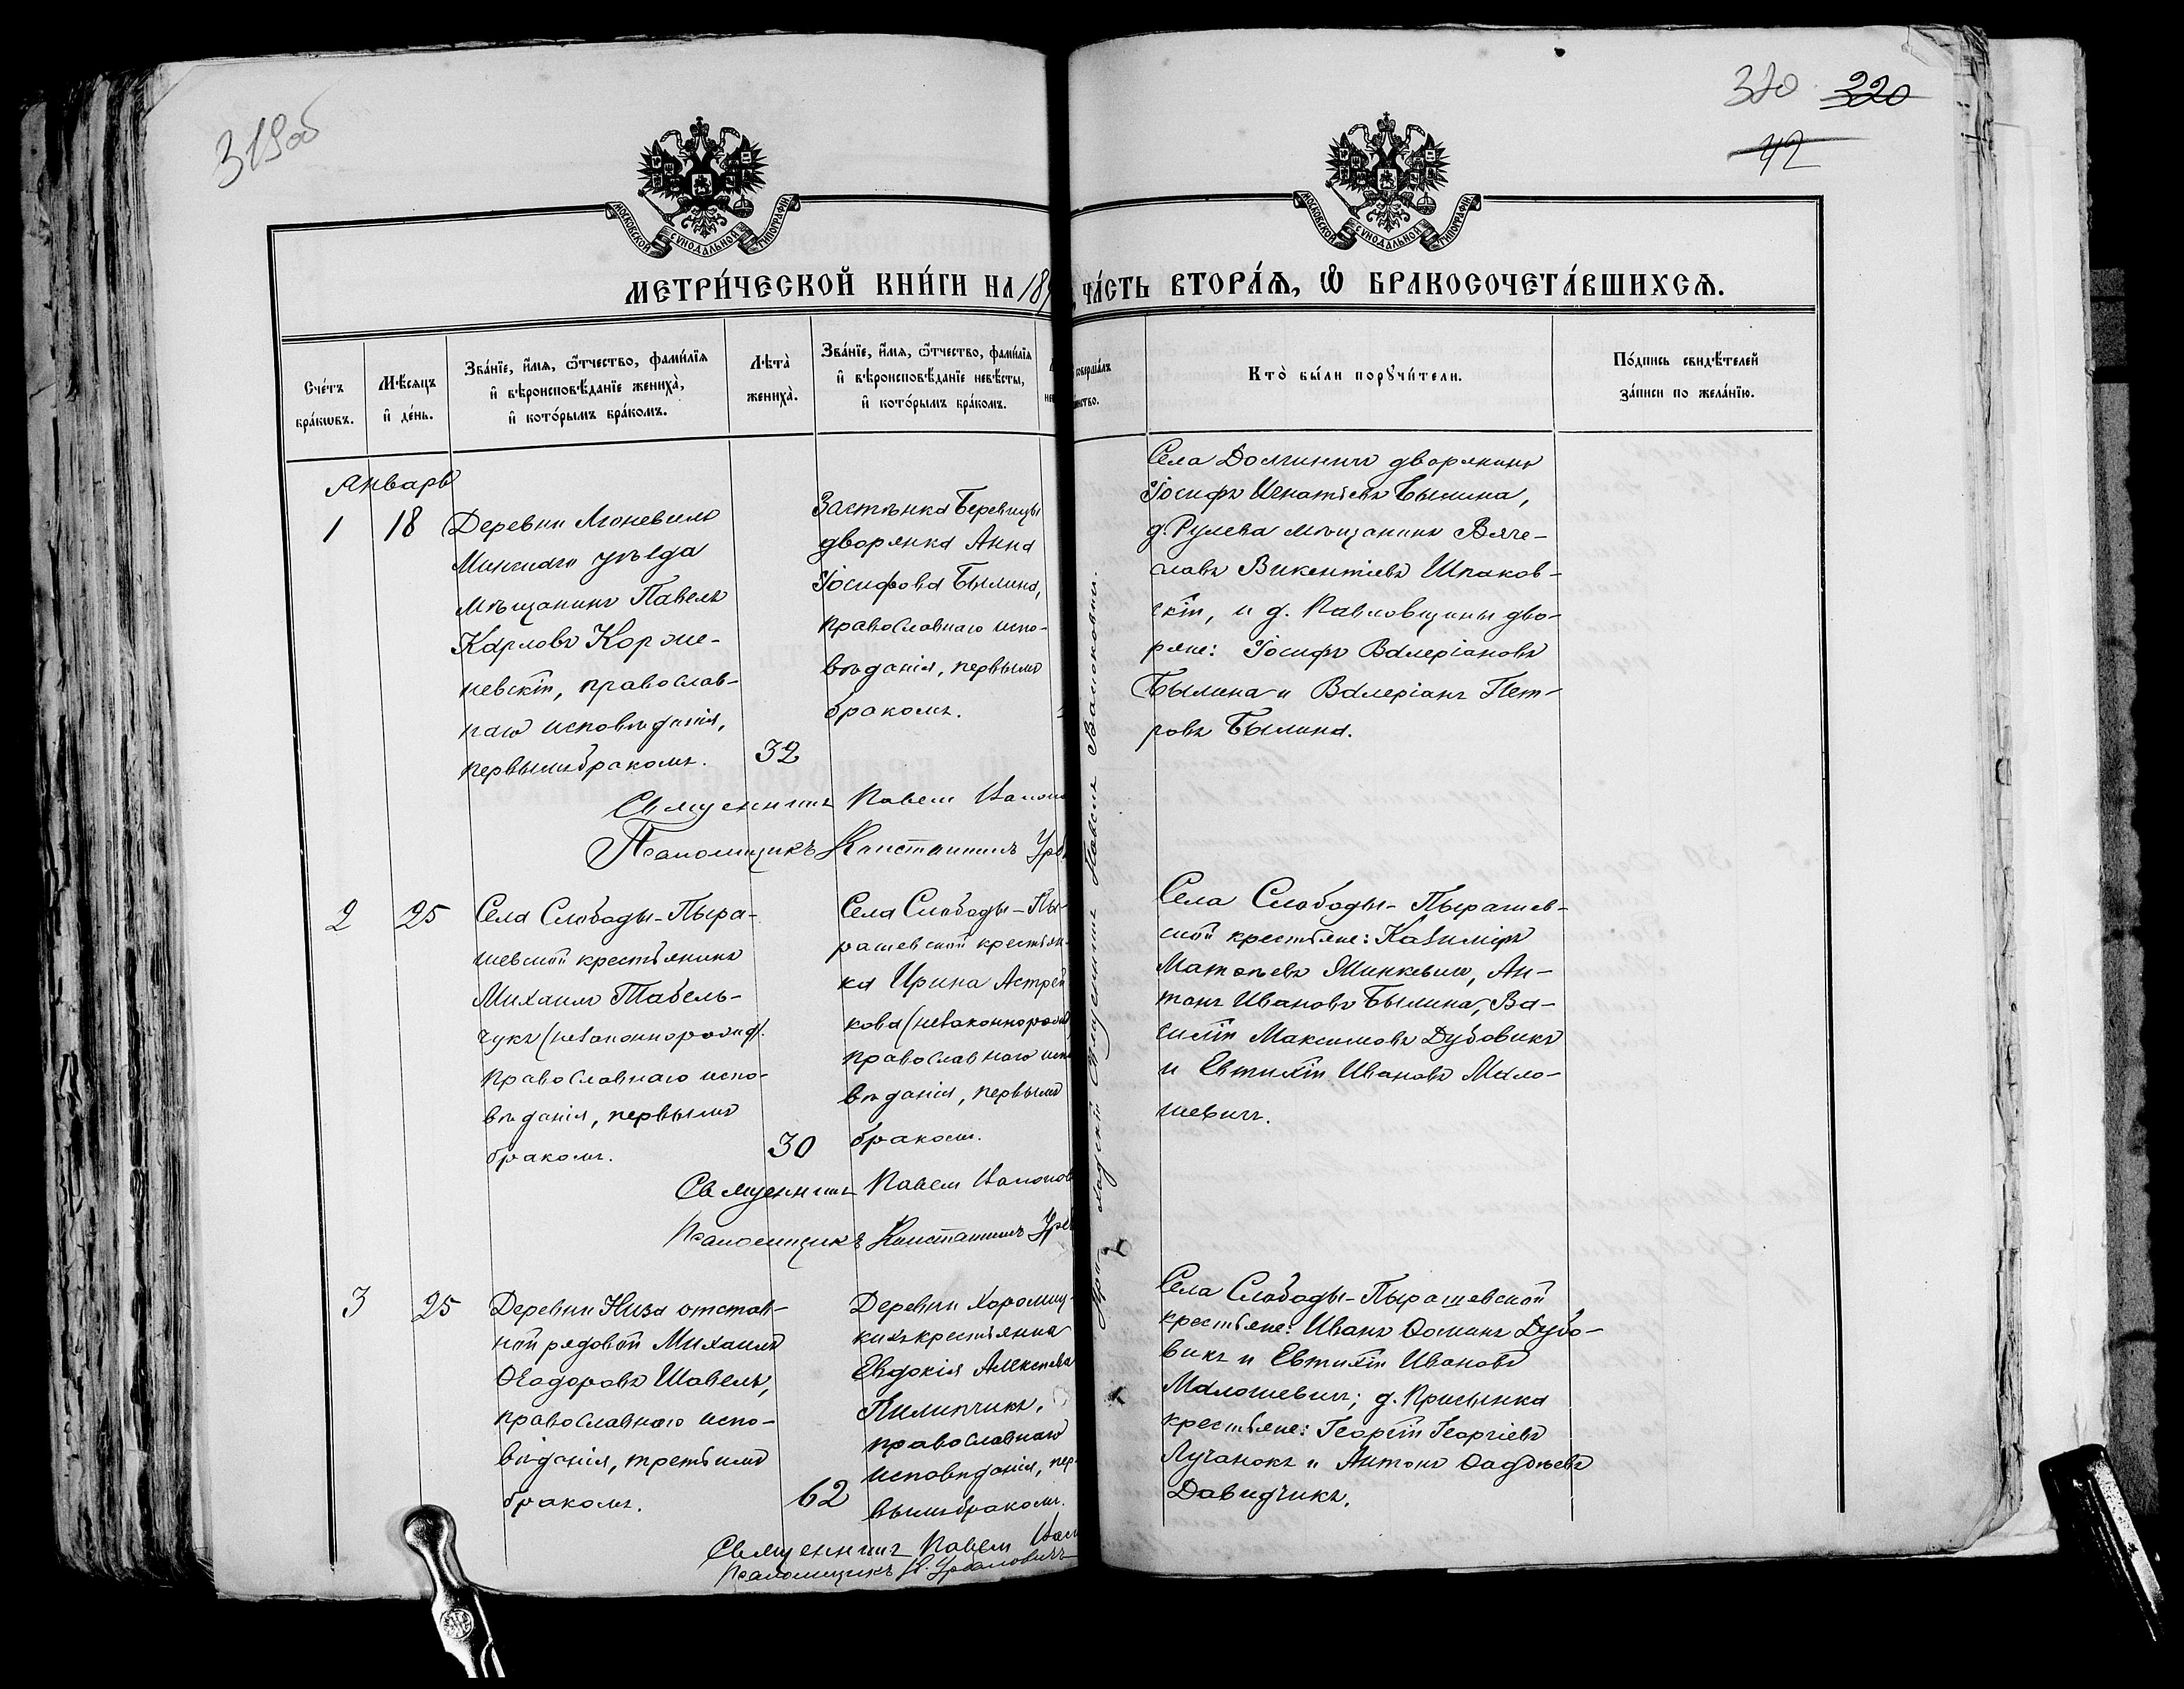 319об
320 220
42
МОСКОВСКОЙ СѴНОДАЛЬНОЙ ТИПОГРАФІИ
МОСКОВСКОЙ СѴНОДАЛЬНОЙ ТИПОГРАФІИ
МЕТРИ́ЧЕСКОЙ КНИ́ГИ НА 189
ЧА́СТЬ ВТОРА́Ѧ, Ѽ БРАКОСОЧЕТА́ВШИХСѦ.
Сче́тъ
бра́кѡвъ.
Мѣ́сѧцъ
и҆ де́нь.
Зва́нїе, и҆́мѧ, ѻ҆́тчество, фами́лїѧ
и҆ вѣроисповѣ́данїе жениха̀,
и҆ кото́рымъ бра́комъ.
Лѣта̀
жениха̀.
Зва́нїе, и҆́мѧ, ѻ҆́тчество, фами́лїѧ
и҆ вѣроисповѣ́данїе невѣ́сты,
и҆ кото́рымъ бра́комъ.
соверша́лъ
Кто̀ бы́ли порꙋчи́тели.
По́дпись свидѣ́телей
за́писи по жела́нїю.
Январь
1
18
Деревни
Минскаго уѣзда
мѣщанинъ Павелъ
Карловъ Корже-
невскій, православ-
наго исповѣданія,
первымъ бракомъ.
32
Застѣнка Беревицы
дворянка Анна
Іосифова Былина,
православнаго испо-
вѣданія, первымъ
бракомъ.
Села Долгиничъ дворянинъ
Іосифъ Игнатіевъ Былина,
д. Рулева мѣщанинъ Вяче-
славъ Викентіевъ Шпаков-
скій, и д. Павловщины дво-
ряне: Іосифъ Валеріановъ
Былина и Валеріанъ Пет-
ровъ Былина.
Священникъ Павелъ
Псаломщикъ Константинъ
2
25
Села Слободы-Пыра-
шевской крестьянинъ
Михаилъ Табель-
чукъ (незаконнорожд).
православнаго испо-
вѣданія, первымъ
бракомъ.
30
Села Слободы-Пы-
рашевской крестьян-
ка Ирина Астрей
кова (незаконнорожд
православнаго испо
вѣданія, первымъ
бракомъ.
Села Слободы-Пырашев-
ской крестьяне: Казиміръ
Матѳѣевъ Минкевичъ, Ан-
тонъ Ивановъ Былина, Ва-
силій Максимовъ Дубовикъ
и Евтихій Ивановъ Мало-
шевичъ.
Священникъ Павелъ
Псаломщикъ Константинъ
3
25
Деревни Низа отстав-
ной рядовой Михаилъ
Ѳеодоровъ Шавель,
православнаго испо-
вѣданія, третьимъ
бракомъ.
62
Деревни Хоромиц-
кихъ крестьянка
Евдокія Алексѣева
Пилипчикъ,
православнаго
исповѣданія, пер-
вымъ бракомъ.
Села Слободы-Пырашевской
крестьяне: Иванъ Ѳоминъ Дубо-
викъ и Евтихій Ивановъ
Малошевичъ; д. Присынка
крестьяне: Георгій Георгіевъ
Лучанокъ и Антонъ Ѳаддѣевъ
Давидчикъ.
Священникъ Павелъ
Псаломщикъ К. Урбановичъ
Приходскій Священникъ Павелъ